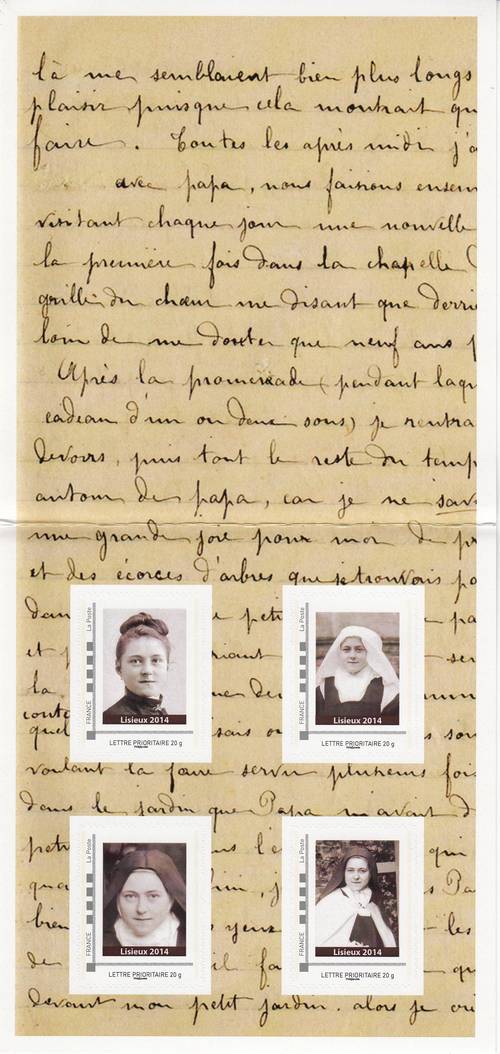 là me semblaient bien plus longs
plaisir puisque cela montrait qu
faire. Toutes les après midi j'a
avec papa, nous faisions ensem
visitant chaque jour une nouvelle
la première fois dans la chapelle
grille du chœur me disant que derri
loin de me douter que neuf ans
Après la promenade (pendant laqu
cadeau d'un ou deux sous) je rentra
devoirs, puis tout le reste du temp
autour de papa, car je ne sav
une grande joie pour moi de pr
et des écorces d'arbres que je trouvais pa
dan petit pa
et riant
la
quel sais
voulant la faire servir plusieurs fois
dans le jardin que Papa m'avait d
petit qui
Pa
bien yeux les
de il
devant mon petit jardin. alors je
La Poste
FRANCE
Lisieux 2014
LETTRE PRIORITAIRE 20 g
La Poste
FRANCE
Lisieux 2014
LETTRE PRIORITAIRE 20 g
La Poste
FRANCE
Lisieux 2014
LETTRE PRIORITAIRE 20 g
La Poste
FRANCE
Lisieux 2014
LETTRE PRIORITAIRE 20 g